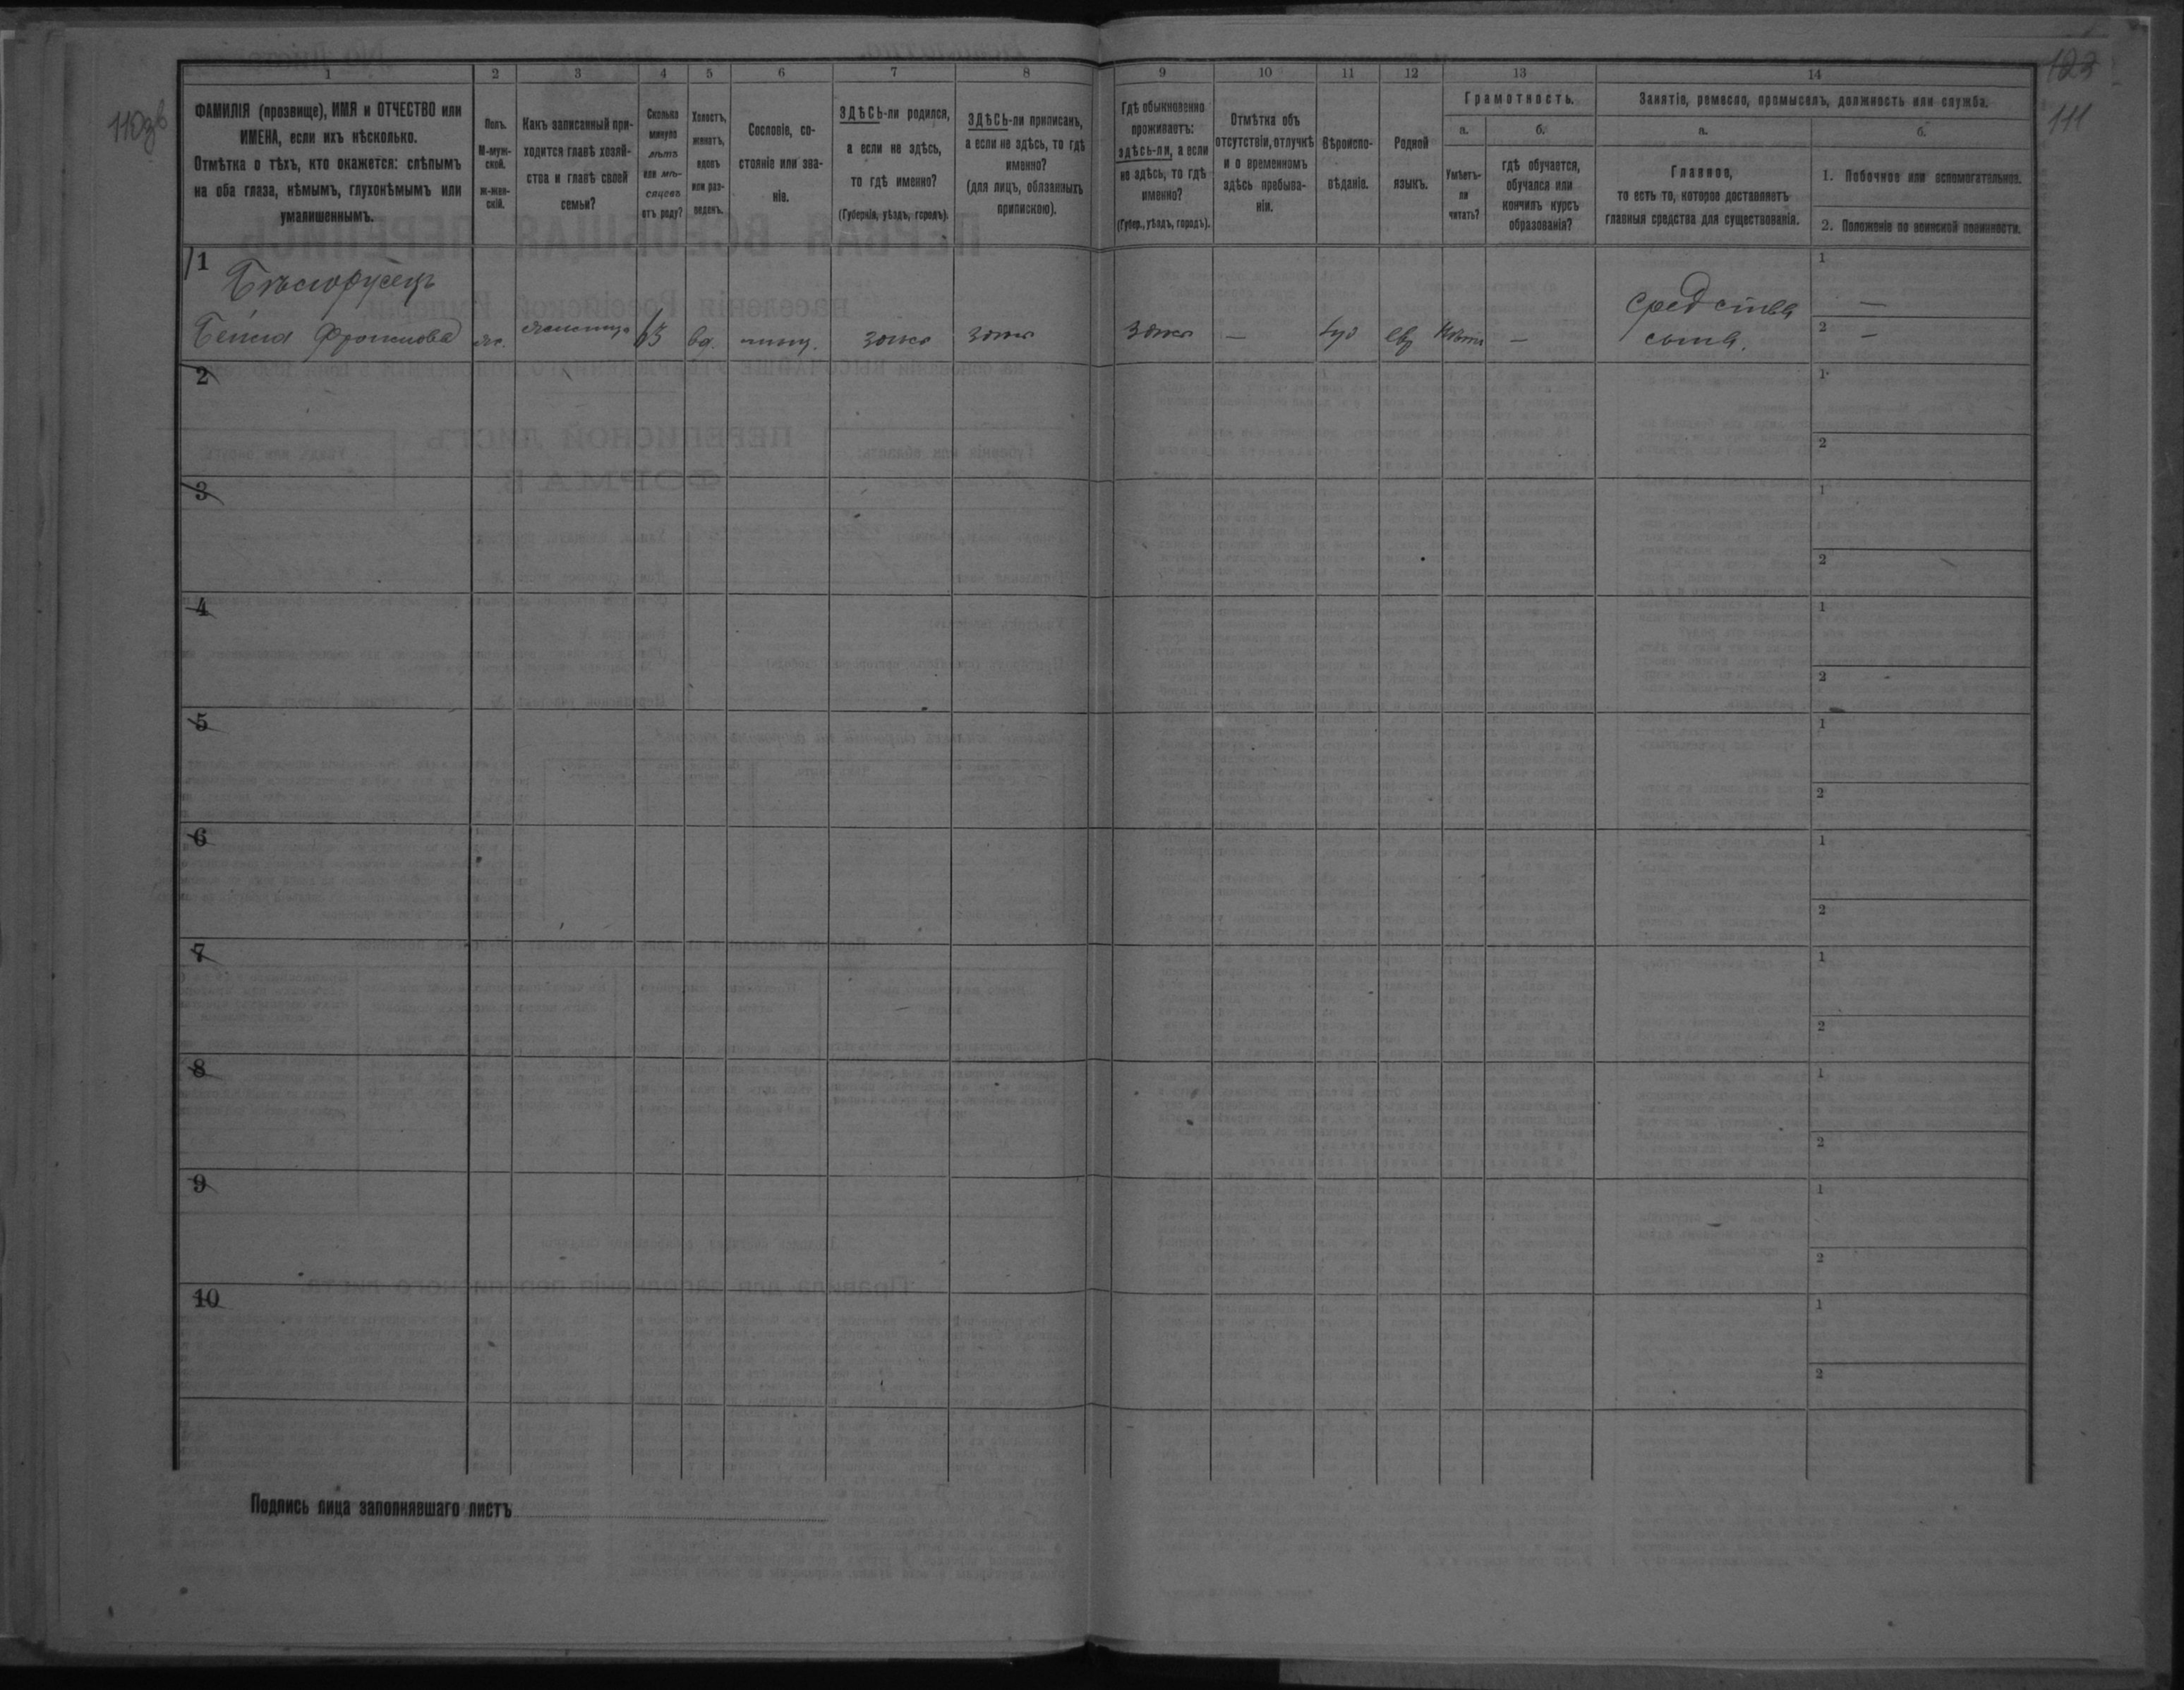 110об
123
111
1
2
3
4
5
6
7
8
9
10
11
12
13
14
ФАМИЛІЯ (прозвище), ИМЯ и ОТЧЕСТВО или
ИМЕНА, если ихъ нѣсколько.
Отмѣтка о тѣхъ, кто окажется: слѣпымъ
на оба глаза, нѣмымъ, глухонѣмымъ или
умалишеннымъ.
Полъ.
М-муж-
ской.
ж-жен-
скій.
Какъ записанный при-
ходится главѣ хозяй-
ства и главѣ своей
семьи?
Сколько
минуло
лѣтъ
или мѣ-
сяцевъ
отъ роду?
Холостъ,
женатъ,
вдовъ
или раз-
веденъ.
Сословіе, со-
стояніе или зва-
ніе.
ЗДѢСЬ-ли родился,
а если не здѣсь,
то гдѣ именно?
(Губернія, уѣздъ, городъ).
ЗДѢСЬ-ли приписанъ,
а если не здѣсь, то гдѣ
именно?
(для лицъ, обязанныхъ
припискою).
Гдѣ обыкновенно
проживаетъ:
здѣсь-ли, а если
не здѣсь, то гдѣ
именно?
(Губер., уѣздъ, городъ).
Отмѣтка объ
отсутствіи, отлучкѣ
и о временномъ
здѣсь пребыва-
ніи.
Вѣроиспо-
вѣданіе.
Родной
языкъ.
Грамотность.
а.
б.
Умѣетъ-
ли
читать?
гдѣ обучается,
обучался или
кончилъ курсъ
образованія?
Занятіе, ремесло, промыселъ, должность или служба.
а.
б.
Главное,
то есть то, которое доставляетъ
главныя средства для существованія.
1. Побочное или вспомогательное.
2. Положеніе по воинской повинности.
1
Бѣлорусецъ
Бейла
ж.
63
вд.
мѣщ.
здѣсь
здѣсь
здѣсь
—
іуд
евр
нѣтъ
—
средства
сына.
1
—
2
—
2
1
2
3
1
2
4
1
2
5
1
2
6
1
2
7
1
2
8
1
2
9
1
2
10
1
2
Подпись лица заполнявшаго листъ